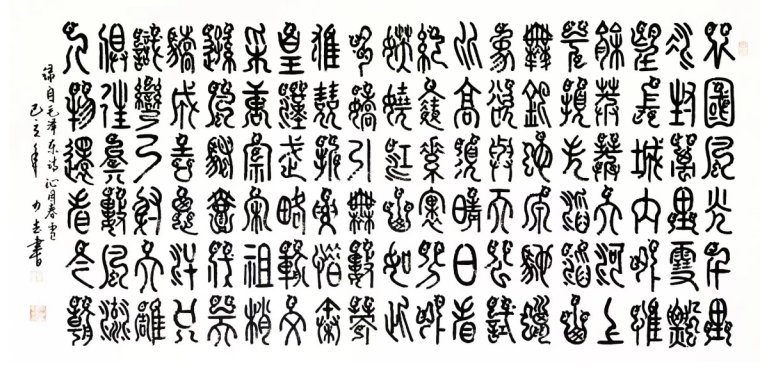 北國風光千里
冰封萬里雪飄
望長城內外惟
餘莽莽大河上
下頓失滔滔山
舞銀蛇原馳蠟
象欲與天公試
比高須晴日看
紅裝素裹分外
妖嬈江山如此
多嬌引無數英
雄競折腰惜秦
皇漢武略輸文
采唐宗宋祖稍
遜風騷一代天
驕成吉思汗只
識彎弓射大雕
俱往矣數風流
人物還看今朝
錄自毛澤东詩沁园春雪
己亥年 書